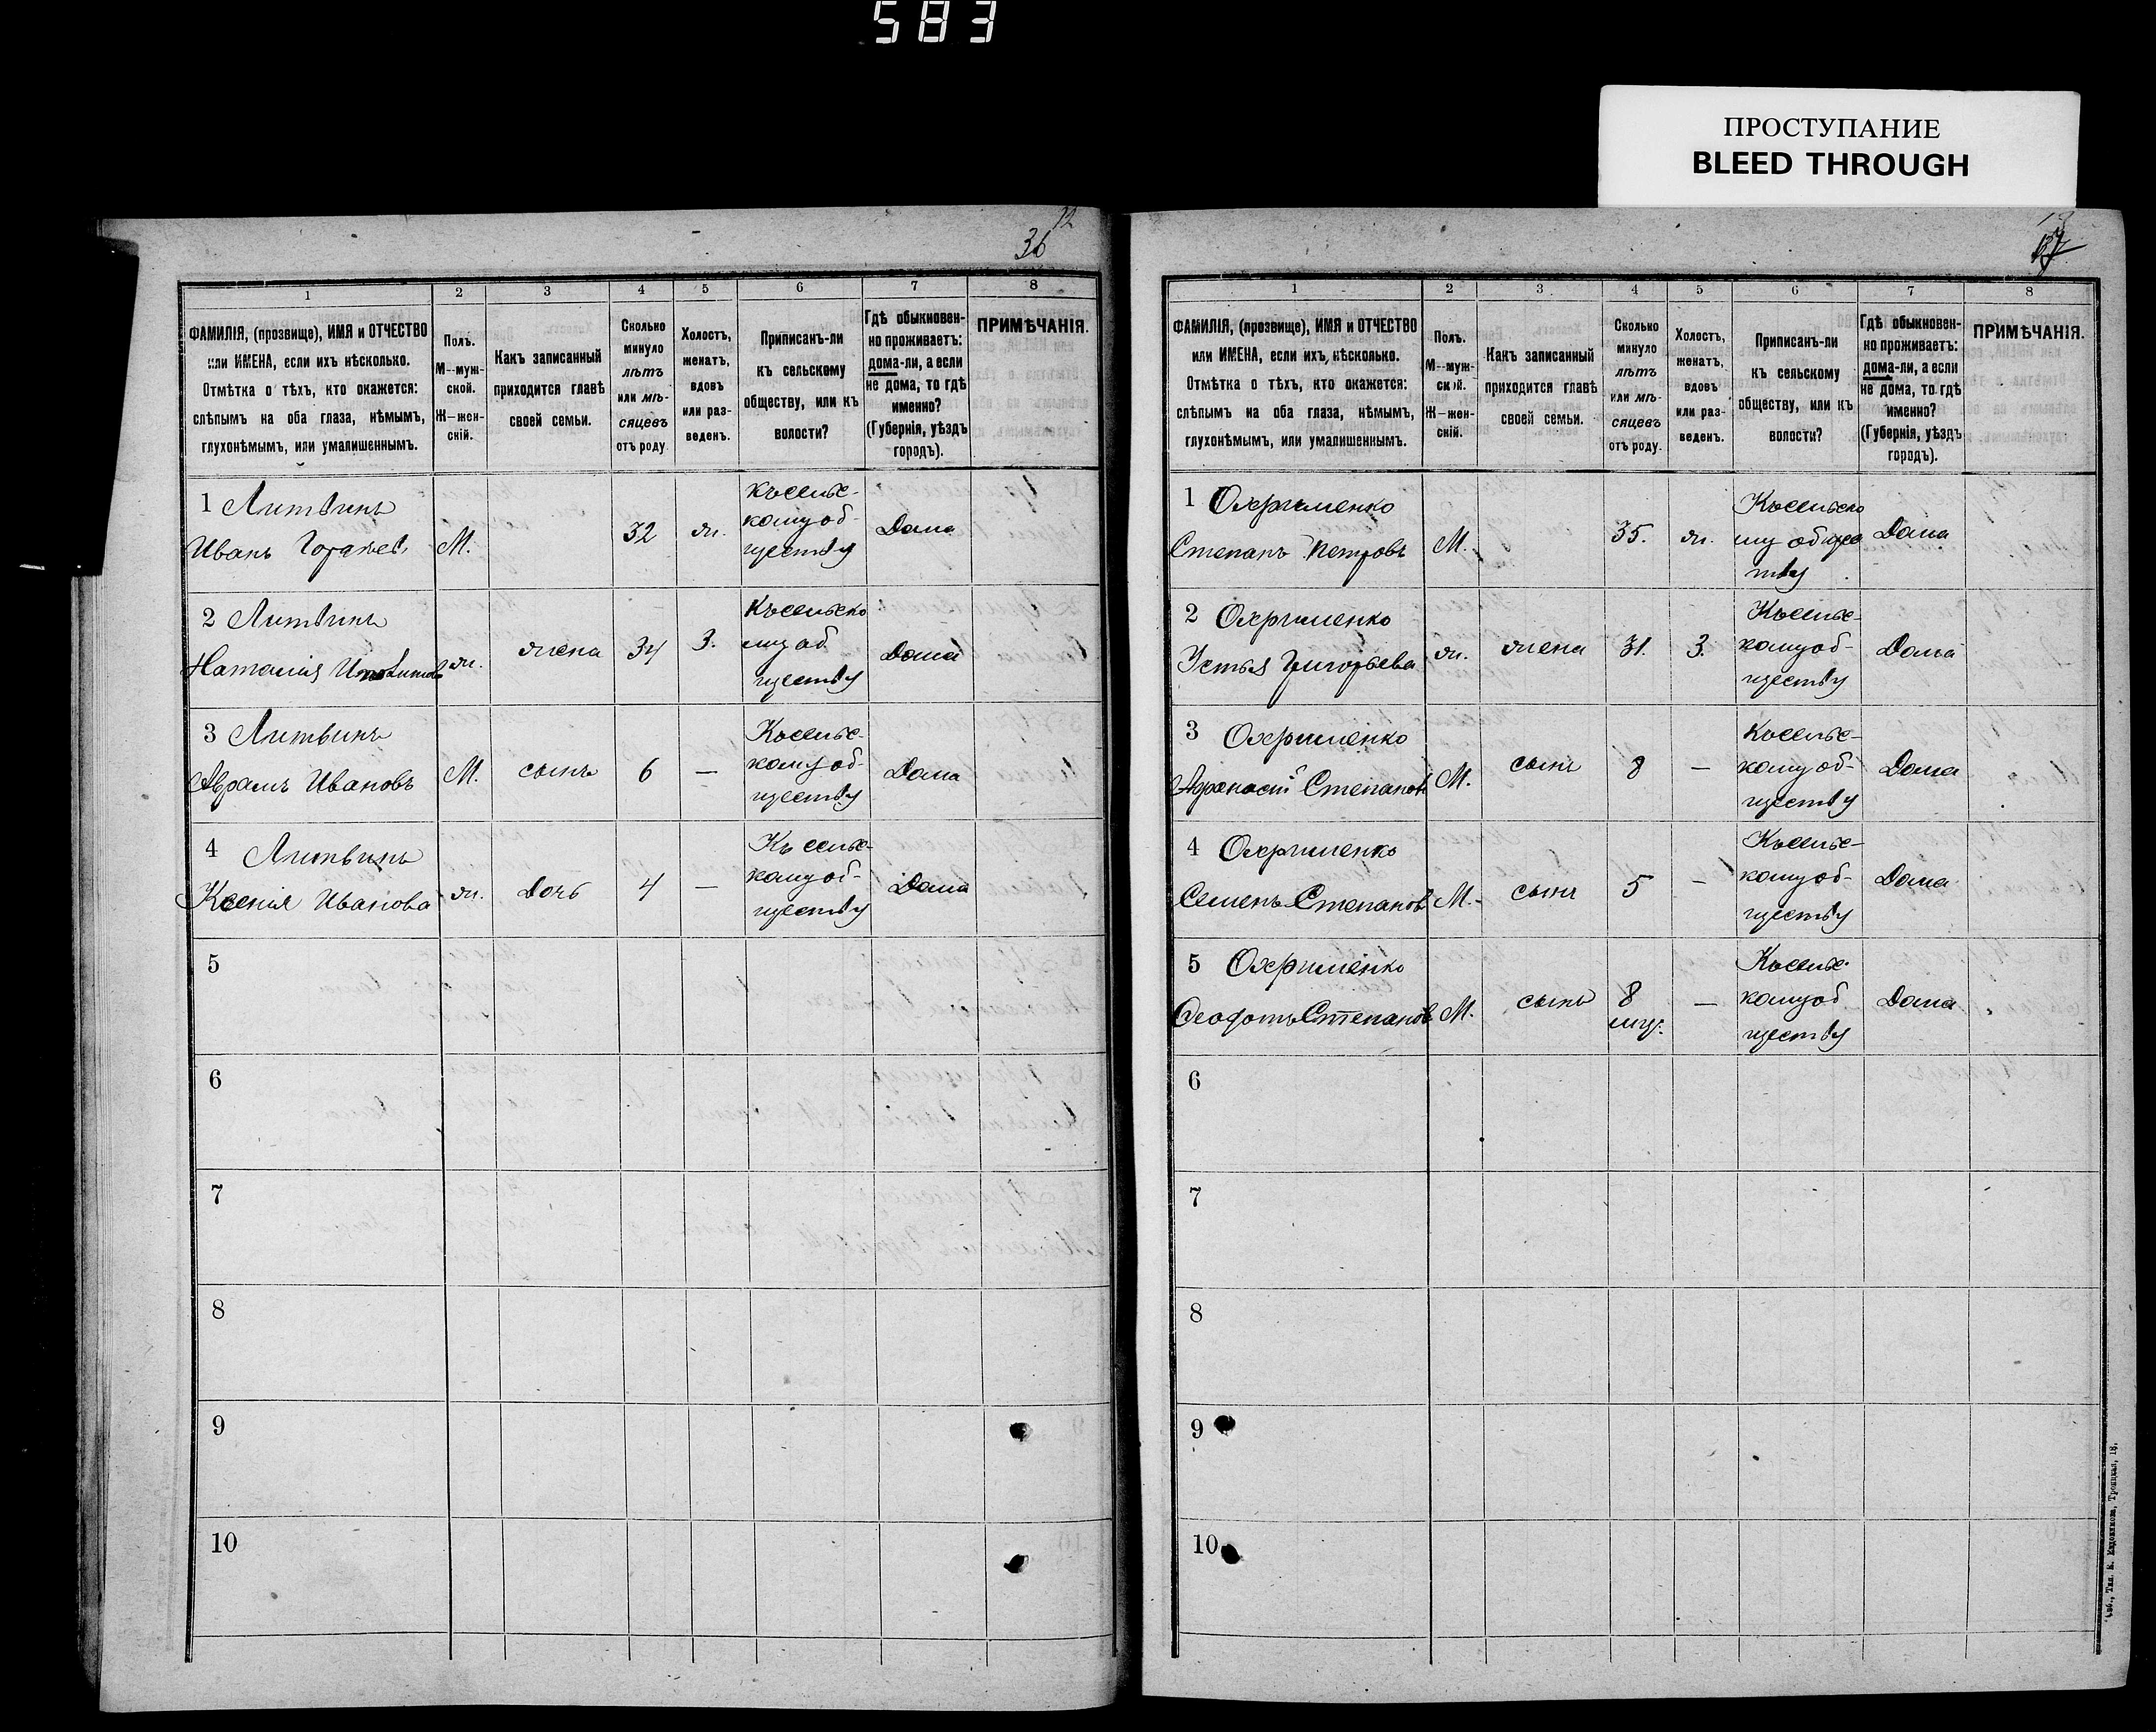 583
ПРОСТУПАНИЕ
BLEED THROUGH
12
36
1 2 3 4 5 6 7 8
ФАМИЛІЯ, (прозвище), ИМЯ и ОТЧЕСТВО
или ИМЕНА, если ихъ нѣсколько.
Отмѣтка о тѣхъ, кто окажется:
слѣпымъ на оба глаза, нѣмымъ,
глухонѣмымъ, или умалишеннымъ.
Полъ.
М—муж-
ской.
Ж—жен-
скій.
Какъ записанный
приходится главѣ
своей семьи.
Сколько
минуло
лѣтъ
или мѣ-
сяцевъ
отъ роду.
Холостъ,
женатъ,
вдовъ
или раз-
веденъ.
Приписанъ-ли
къ сельскому
обществу, или къ
волости?
Гдѣ обыкновен-
но проживаетъ:
дома-ли, а если
не дома, то гдѣ
именно?
(Губернія, уѣздъ
городъ).
ПРИМѢЧАНІЯ.
1 Литвинъ
Иванъ
М.
32
ж.
Къ сельс-
кому об-
ществу
Дома
2 Литвинъ
Наталія
ж.
жена
34
З.
Къ сельско
му об
ществу
Дома
3 Литвинъ
Аврамъ Ивановъ
М.
сынъ
6
—
Къ сельс-
кому об-
ществу
Дома
4 Литвинъ
Ксенія Иванова
ж.
дочь
4
—
Къ сельс-
кому об-
ществу
Дома
5
6
7
8
9
10
1 2 3 4 5 6 7 8
ФАМИЛІЯ, (прозвище), ИМЯ и ОТЧЕСТВО
или ИМЕНА, если ихъ, нѣсколько.
Отмѣтка о тѣхъ, кто окажется:
слѣпымъ на оба глаза, нѣмымъ,
глухонѣмымъ, или умалишеннымъ.
Полъ.
М—муж-
ской.
Ж—жен-
скій.
Какъ записанный
приходится главѣ
своей семьи.
Сколько
минуло
лѣтъ
или мѣ-
сяцевъ
отъ роду.
Холостъ,
женатъ,
вдовъ
или раз-
веденъ.
Приписанъ-ли
къ сельскому
обществу, или къ
волости?
Гдѣ обыкновен-
но проживаетъ:
дома-ли, а если
не дома, то гдѣ
именно?
(Губернія, уѣздъ
городъ).
ПРИМѢЧАНІЯ.
1 Охрименко
Степанъ Петровъ
М.
35.
ж.
Къ сельско
му общес
тву
Дома
2 Охрименко
Устья Григорьева
ж.
жена
31.
З.
Къ сельс-
кому об-
ществу
Дома
3 Охрименко
Афонасій Степановъ
М.
сынъ
8
—
Къ сельс-
кому об-
ществу
Дома
4 Охрименко
Семенъ Степановъ
М.
сынъ
5
—
Къ сельс-
кому об-
ществу
Дома
5 Охрименко
Феодотъ Степановъ
М.
сынъ
8
мц.
—
Къ сельс-
кому об
ществу
Дома
6
7
8
9
10
Спб., Тип. Е. Евдокимова, Троицкая, 18.